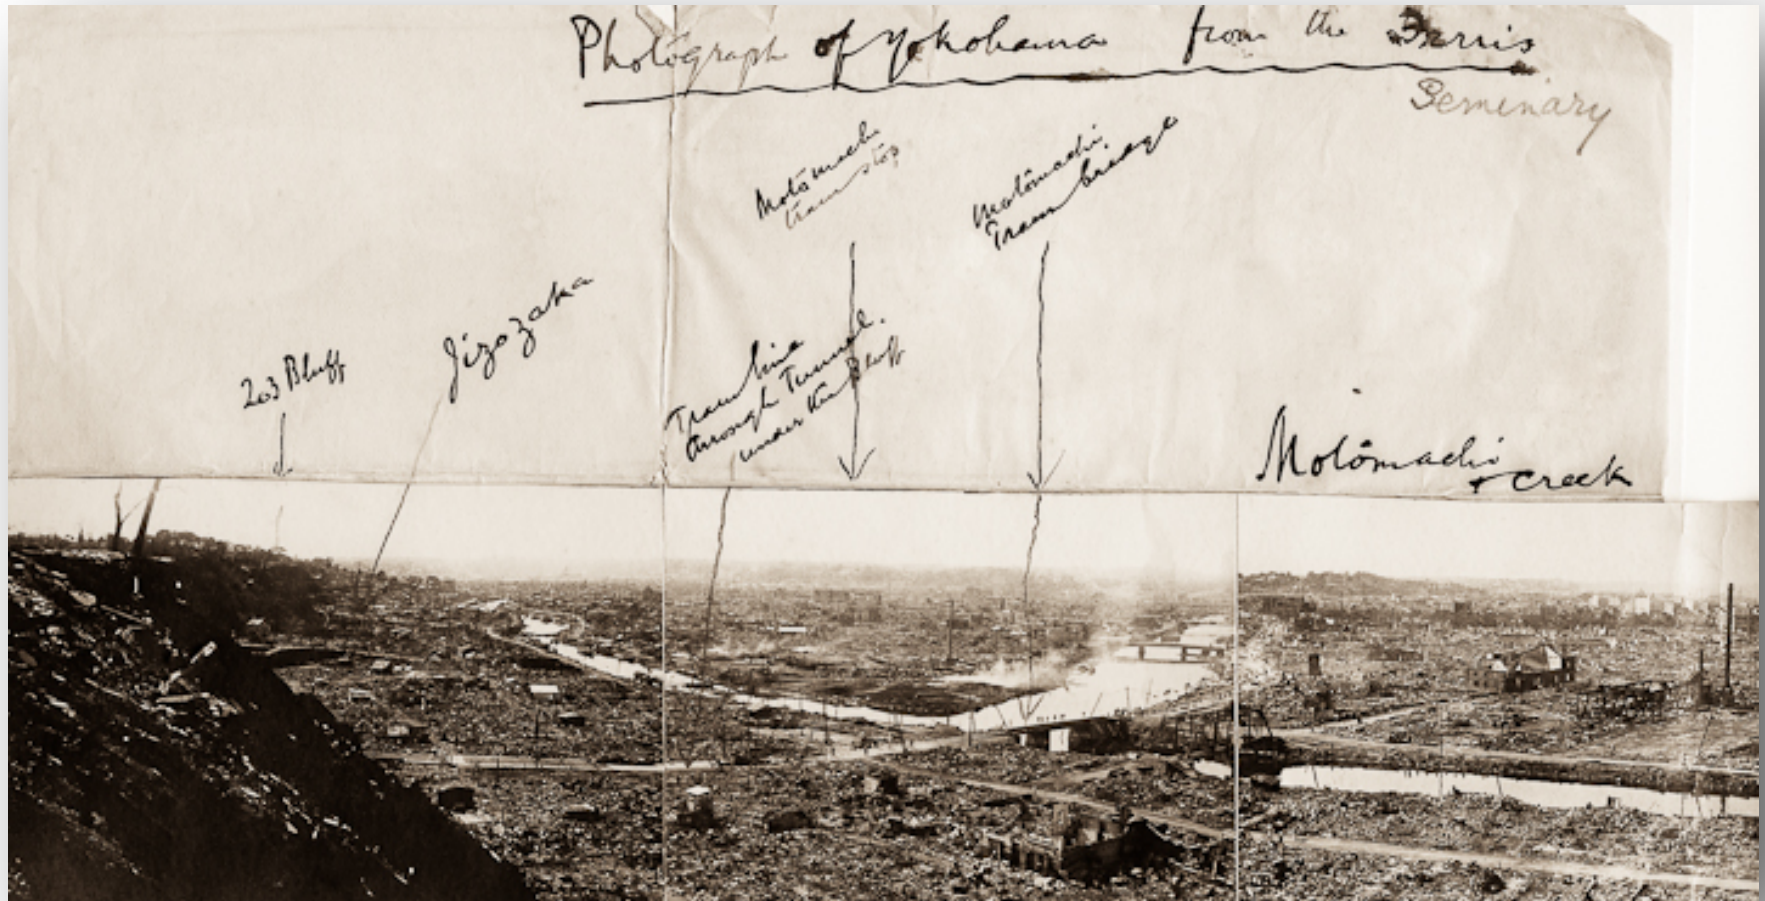 Photograph of Yokohama from the Ferris
Seminary
Motômachi
tram stop
Motômachi
Tram bridge
Jizozaka
203 Bluff
Tram line
through Tunnel.
under the Bluff
Motômachi
+ creek